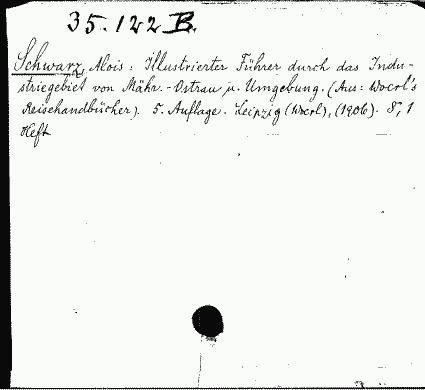 35.122 B.
Schwarz, Alois: Illustrierter Führer durch das Indu-
striegebiet von Mähr.-Ostrau u. Umgebung. (Aus: Woerl's
Reisehandbücher). 5. Auflage. Leipzig (Woerl), (1906). 8°, 1
Heft